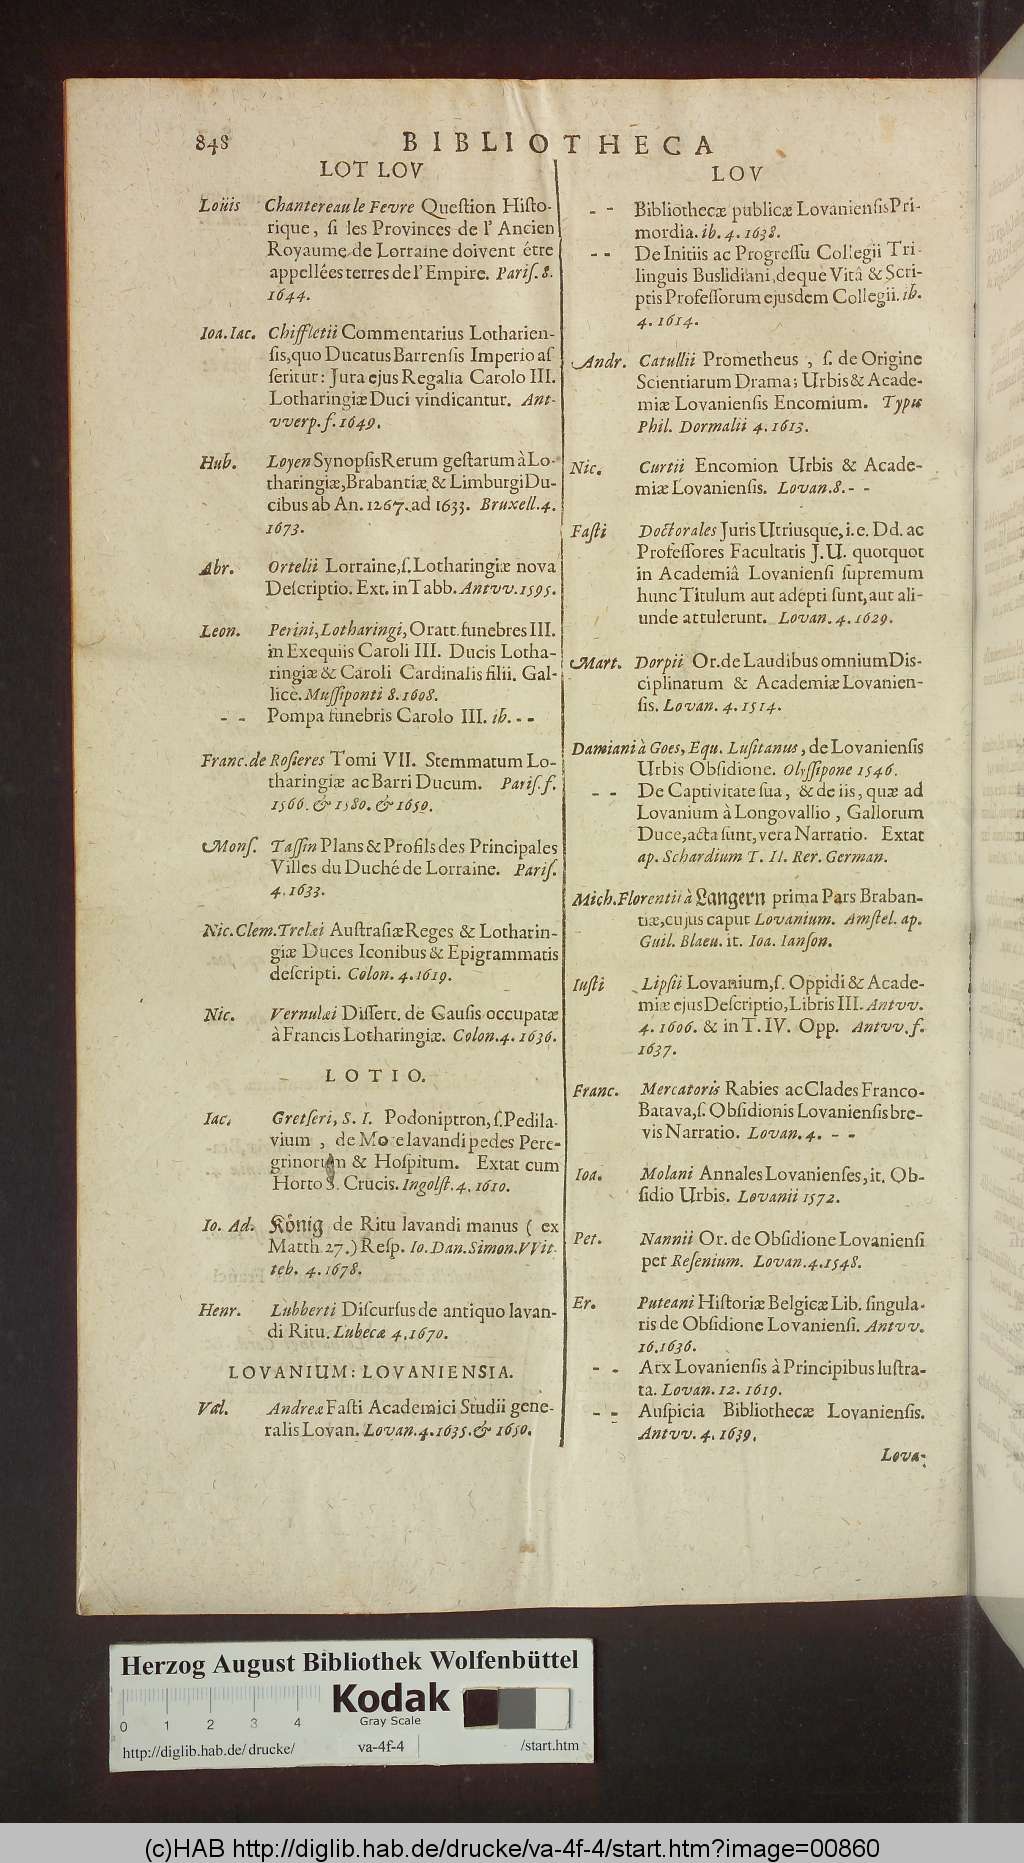 848 BIBLIOTHECA
LOT LOV
Loüis Chantereau le Fevre Queſtion Hiſto-
rique, ſi les Provinces de l' Ancien
Royaume de Lorraine doivent étre
appellées terres de l' Empire. Pariſ. 8.
1644.
Ioa. Iac. Chiffletii Commentarius Lotharien-
ſis, quo Ducatus Barrenſis Imperio aſ
ſeritur: Jura ejus Regalia Carolo III.
Lotharingiæ Duci vindicantur. Ant-
vverp. f. 1649.
Hub. Loyen Synopſis Rerum geſtarum à Lo-
tharingiæ, Brabantiæ & Limburgi Du-
cibus ab An. 1267. ad 1633. Bruxell. 4.
1673.
Abr. Ortelii Lorraine, ſ. Lotharingiæ nova
Deſcriptio. Ext. in Tabb. Antvv. 1595.
Leon. Perini, Lotharingi, Oratt. funebres III.
in Exequiis Caroli III. Ducis Lotha-
ringiæ & Caroli Cardinalis filii. Gal-
licè. Muſſiponti 8. 1608.
- - Pompa funebris Carolo III. ib. - -
Franc. de Roſieres Tomi VII. Stemmatum Lo-
tharingiæ ac Barri Ducum. Pariſ. f.
1566. & 1580. & 1650.
Monſ. Taſſin Plans & Profils des Principales
Villes du Duché de Lorraine. Pariſ.
4. 1633.
Nic. Clem. Trelæi Auſtraſiæ Reges & Lotharin-
giæ Duces Iconibus & Epigrammatis
deſcripti. Colon. 4. 1619.
Nic. Vernulæi Diſſert. de Gauſis occupatæ
à Francis Lotharingiæ. Colon. 4. 1636.
LOTIO.
Iac. Gretſeri, S. I. Podoniptron, ſ. Pedila-
vium, de More lavandi pedes Pere-
grinorum & Hoſpitum. Extat cum
Horto S. Crucis. Ingolſt. 4. 1610.
Io. Ad. König de Ritu lavandi manus (ex
Matth. 27.) Reſp. Io. Dan. Simon. VVit-
teb. 4. 1678.
Henr. Lubberti Diſcurſus de antiquo lavan-
di Ritu. Lubecæ 4. 1670.
LOVANIUM: LOVANIENSIA.
Val. Andreæ Faſti Academici Studii gene-
ralis Lovan. Lovan. 4. 1635. & 1650.
LOV
- - Bibliothecæ publicæ Lovanienſis Pri-
mordia. ib. 4. 1638.
- - De Initiis ac Progreſſu Collegii Tri-
linguis Buslidiani, deque Vitâ & Scri-
ptis Profeſſorum ejusdem Collegii. ib.
4. 1614.
Andr. Catullii Prometheus, ſ. de Origine
Scientiarum Drama; Urbis & Acade-
miæ Lovanienſis Encomium. Typis
Phil. Dormalii 4. 1613.
Nic. Curtii Encomion Urbis & Acade-
miæ Lovanienſis. Lovan. 8. - -
Faſti Doctorales Juris Utriusque, i. e. Dd. ac
Profeſſores Facultatis J. U. quotquot
in Academiâ Lovanienſi ſupremum
hunc Titulum aut adepti ſunt, aut ali-
unde attulerunt. Lovan. 4. 1629.
Mart. Dorpii Or. de Laudibus omnium Diſ-
ciplinarum & Academiæ Lovanien-
ſis. Lovan. 4. 1514.
Damiani à Goes, Equ. Luſitanus, de Lovanienſis
Urbis Obſidione. Olyſſipone 1546.
- - De Captivitate ſua, & de iis, quæ ad
Lovanium à Longovallio, Gallorum
Duce, acta ſunt, vera Narratio. Extat
ap. Schardium T. II. Rer. German.
Mich. Florentii à Langern prima Pars Braban-
tiæ, cujus caput Lovanium. Amſtel. ap.
Guil. Blaeu. it. Ioa. Ianſon.
Iuſti Lipſii Lovanium, ſ. Oppidi & Acade-
miæ ejus Deſcriptio, Libris III. Antvv.
4. 1606. & in T. IV. Opp. Antvv. f.
1637.
Franc. Mercatoris Rabies ac Clades Franco-
Batava, ſ. Obſidionis Lovanienſis bre-
vis Narratio. Lovan. 4. - -
Ioa. Molani Annales Lovanienſes, it. Ob-
ſidio Urbis. Lovanii 1572.
Pet. Nannii Or. de Obſidione Lovanienſi
per Roſenium. Lovan. 4. 1548.
Er. Puteani Hiſtoriæ Belgicæ Lib. ſingula-
ris de Obſidione Lovanienſi. Antvv.
16. 1636.
- - Arx Lovanienſis à Principibus luſtra-
ta. Lovan. 12. 1619.
- - Auſpicia Bibliothecæ Lovanienſis.
Antvv. 4. 1639.
Lova-
Herzog August Bibliothek Wolfenbüttel
Kodak
Gray Scale
0 1 2 3 4
http://diglib.hab.de/drucke/ va-4f-4 /start.htm
(c)HAB http://diglib.hab.de/drucke/va-4f-4/start.htm?image=00860